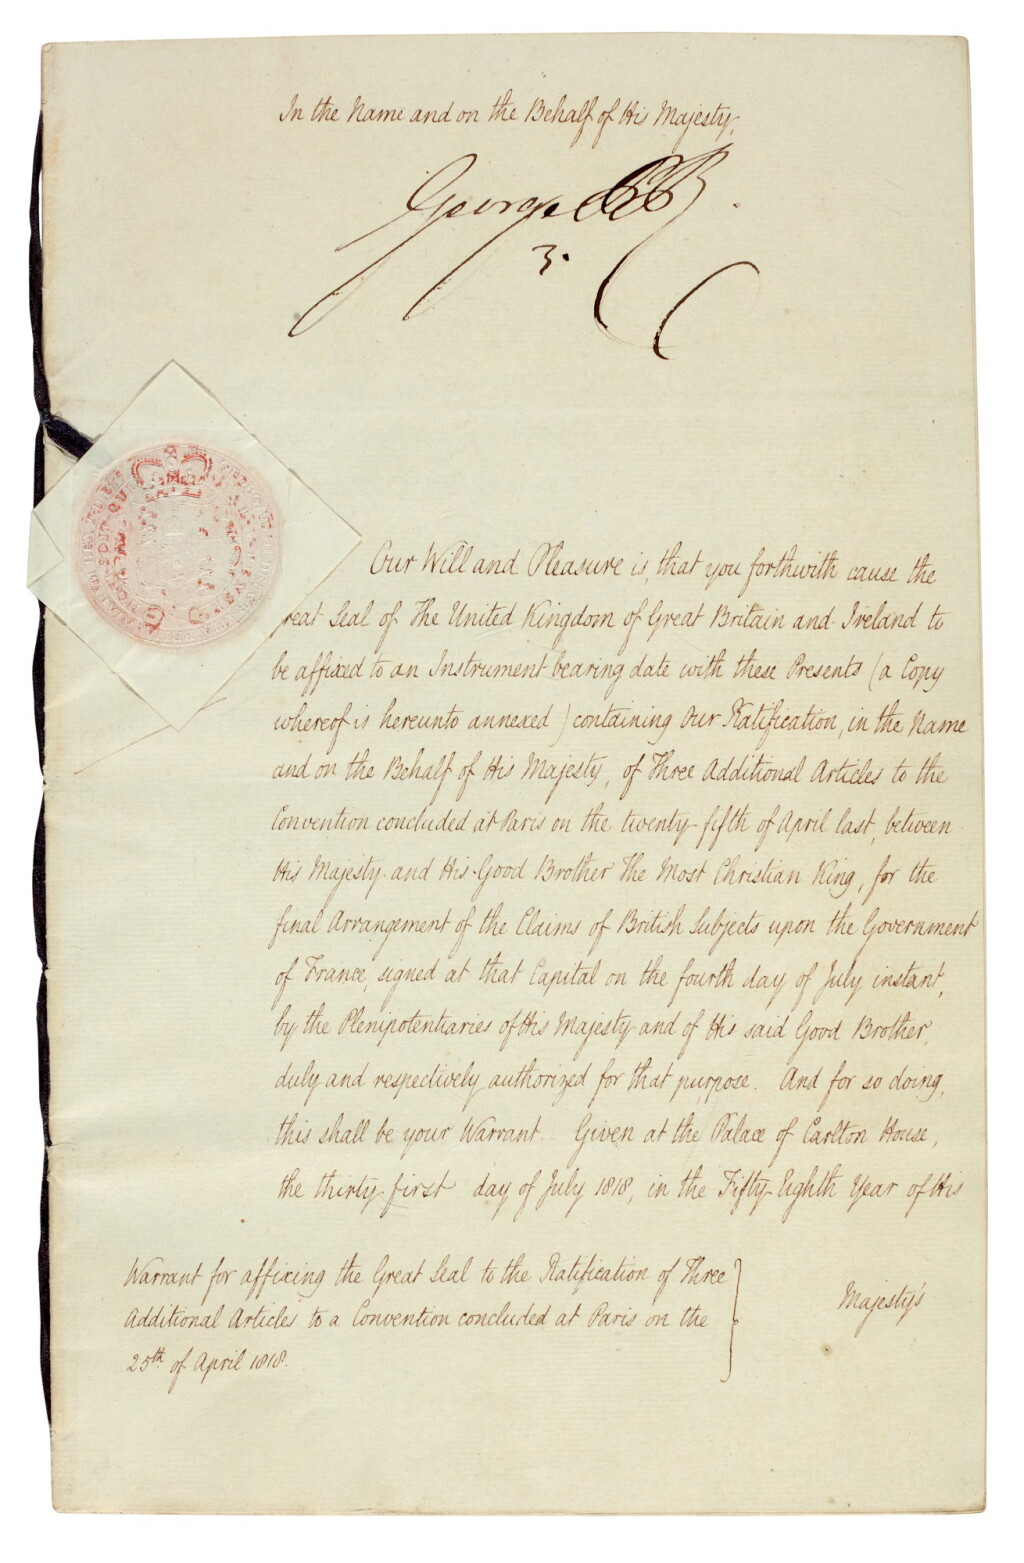 In the Name and on the Behalf of His Majesty,
George PR
3.
Our Will and Pleasure is, that you forthwith cause the
reat Seal of The United Kingdom of Great Britain and Ireland to
be affixed to an Instrument bearing date with these Presents (a Copy
whereof is hereunto annexed) containing Our Ratification, in the Name
and on the Behalf of His Majesty, of Three Additional Articles to the
Convention concluded at Paris on the twenty-fifth of April last, between
His Majesty and His Good Brother The Most Christian King, for the
final Arrangement of the Claims of British Subjects upon the Government
of France, signed at that Capital on the fourth day of July instant,
by the Plenipotentiaries of His Majesty and of His said Good Brother,
duly and respectively authorized for that purpose. And for so doing,
this shall be your Warrant. Given at the Palace of Carlton House,
the thirty first day of July 1818, in the Fifty Eighth Year of His
Majesty's
Warrant for affixing the Great Seal to the Ratification of Three
Additional Articles to a Convention concluded at Paris on the
25th of April 1818.